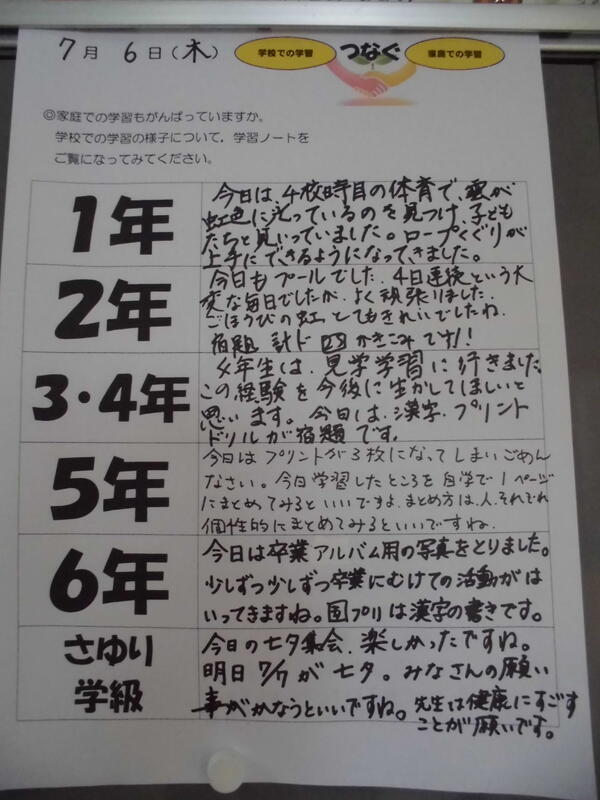 7月 6日(木)
学校での学習 つなぐ 家庭での学習
◎家庭での学習もがんばっていますか。
学校での学習の様子について,学習ノートを
ご覧になってみてください。
1年
今日は、4校時目の体育で、雲が
虹色に光っているのを見つけ、子ども
たちと見いっていました。ロープくぐりが
上手にできるようになってきました。
2年
今日もプールでした。4日連続という大
変な毎日でしたが、よく頑張りました。
ごほうびの虹とてもきれいでしたね。
宿題 計ド 四 かきこみです!!
3・4年
4年生は、見学学習に行きました。
この経験を今後に生かしてほしいと
思います。今日は、漢字、プリント
ドリルが宿題です。
5年
今日はプリントが3枚になってしまいごめん
なさい。今日学習したところを自学で1ページ
にまとめてみるといいですよ。まとめ方は、人それぞれ
個性的にまとめてみるといいですね。
6年
今日は卒業アルバム用の写真をとりました。
少しずつ少しずつ卒業にむけての活動がは
いってきますね。国プリは漢字の書きです。
さゆり
学級
今日の七夕集会、楽しかったですね。
明日7/7が七夕。みなさんの願い
事がかなうといいですね。先生は健康にすごす
ことが願いです。